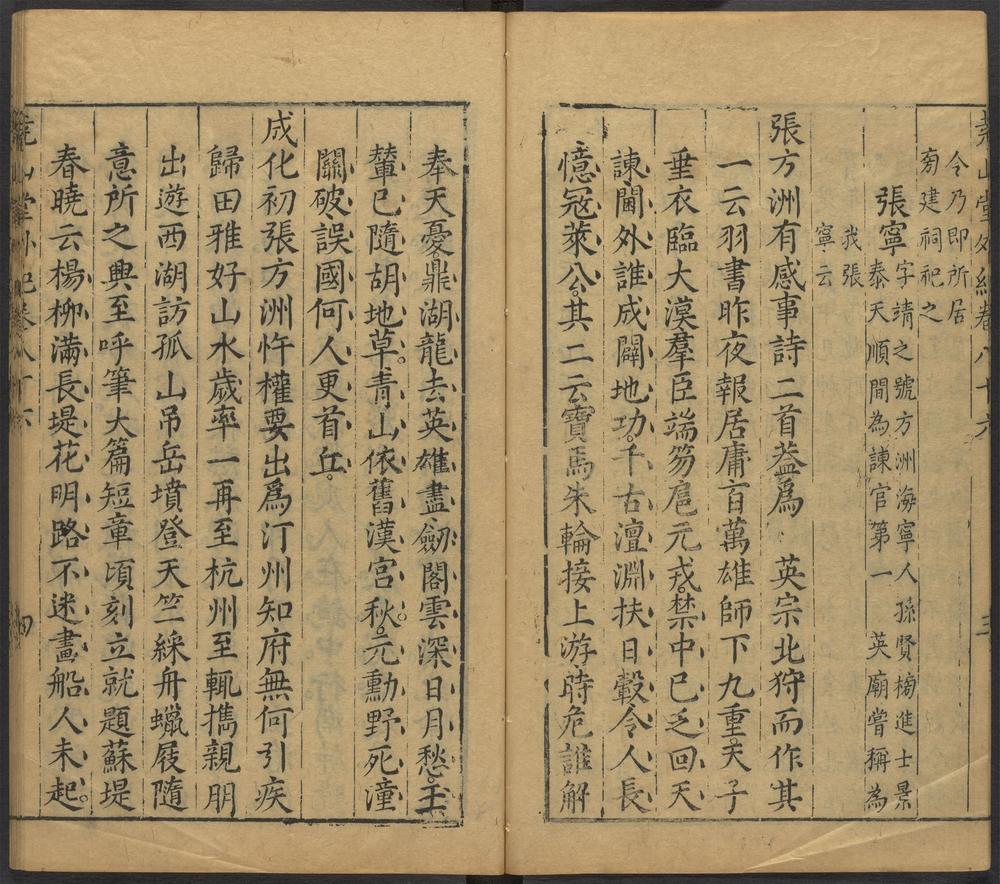 堯山堂外紀卷八十六
三
令乃即所居
旁建祠祀之
張寧
字靖之號方洲海寧人孫賢榜進士景
泰天順間為諫官第一 英廟嘗稱為
我張
寧云
張方洲有感事詩二首葢爲 英宗北狩而作其
一云羽書昨夜報居庸百萬雄師下九重天子
垂衣臨大漠羣臣端笏扈元戎禁中已乏回天
諫閫外誰成闢地功千古澶淵扶日轂令人長
憶冦萊公其二云寶馬朱輪接上游時危誰解
奉天憂鼎湖龍去英雄盡劒閣雲深日月愁玉
輦已隨胡地草青山依舊漢宮秋元勳野死潼
關破誤國何人更首丘
成化初張方洲忤權要出爲汀州知府無何引疾
歸田雅好山水歲率一再至杭州至輒攜親朋
出遊西湖訪孤山吊岳墳登天竺綵舟蠟屐隨
意所之興至呼筆大篇短章頃刻立就題蘇堤
春曉云楊柳滿長堤花明路不迷畫船人未起
堯山堂外紀卷八十六
四